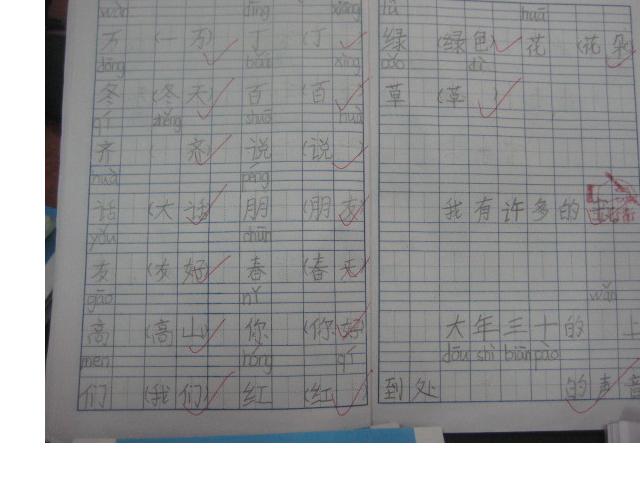 wàn dīng xiāng
万 (一 万) 丁 (丁
dōng bǎi xìng
冬 (冬 天) 百 (百
qí zhěng shuō huà
齐 ( 齐) 说 (说
huà péng
话 (大 话) 朋 (朋 友)
yǒu chūn
友 (友 好) 春 (春 天)
gāo nǐ
高 (高 山) 你 (你 好)
men hóng qí
们 (我 们) 红 (红
lǜ huā
绿 (绿 色) 花 (花 朵)
cǎo dì
草 (草
我 有 许 多 的
wǎn
大 年 三 十 的 上
dōu shì biān pào
到 处 的 声 音